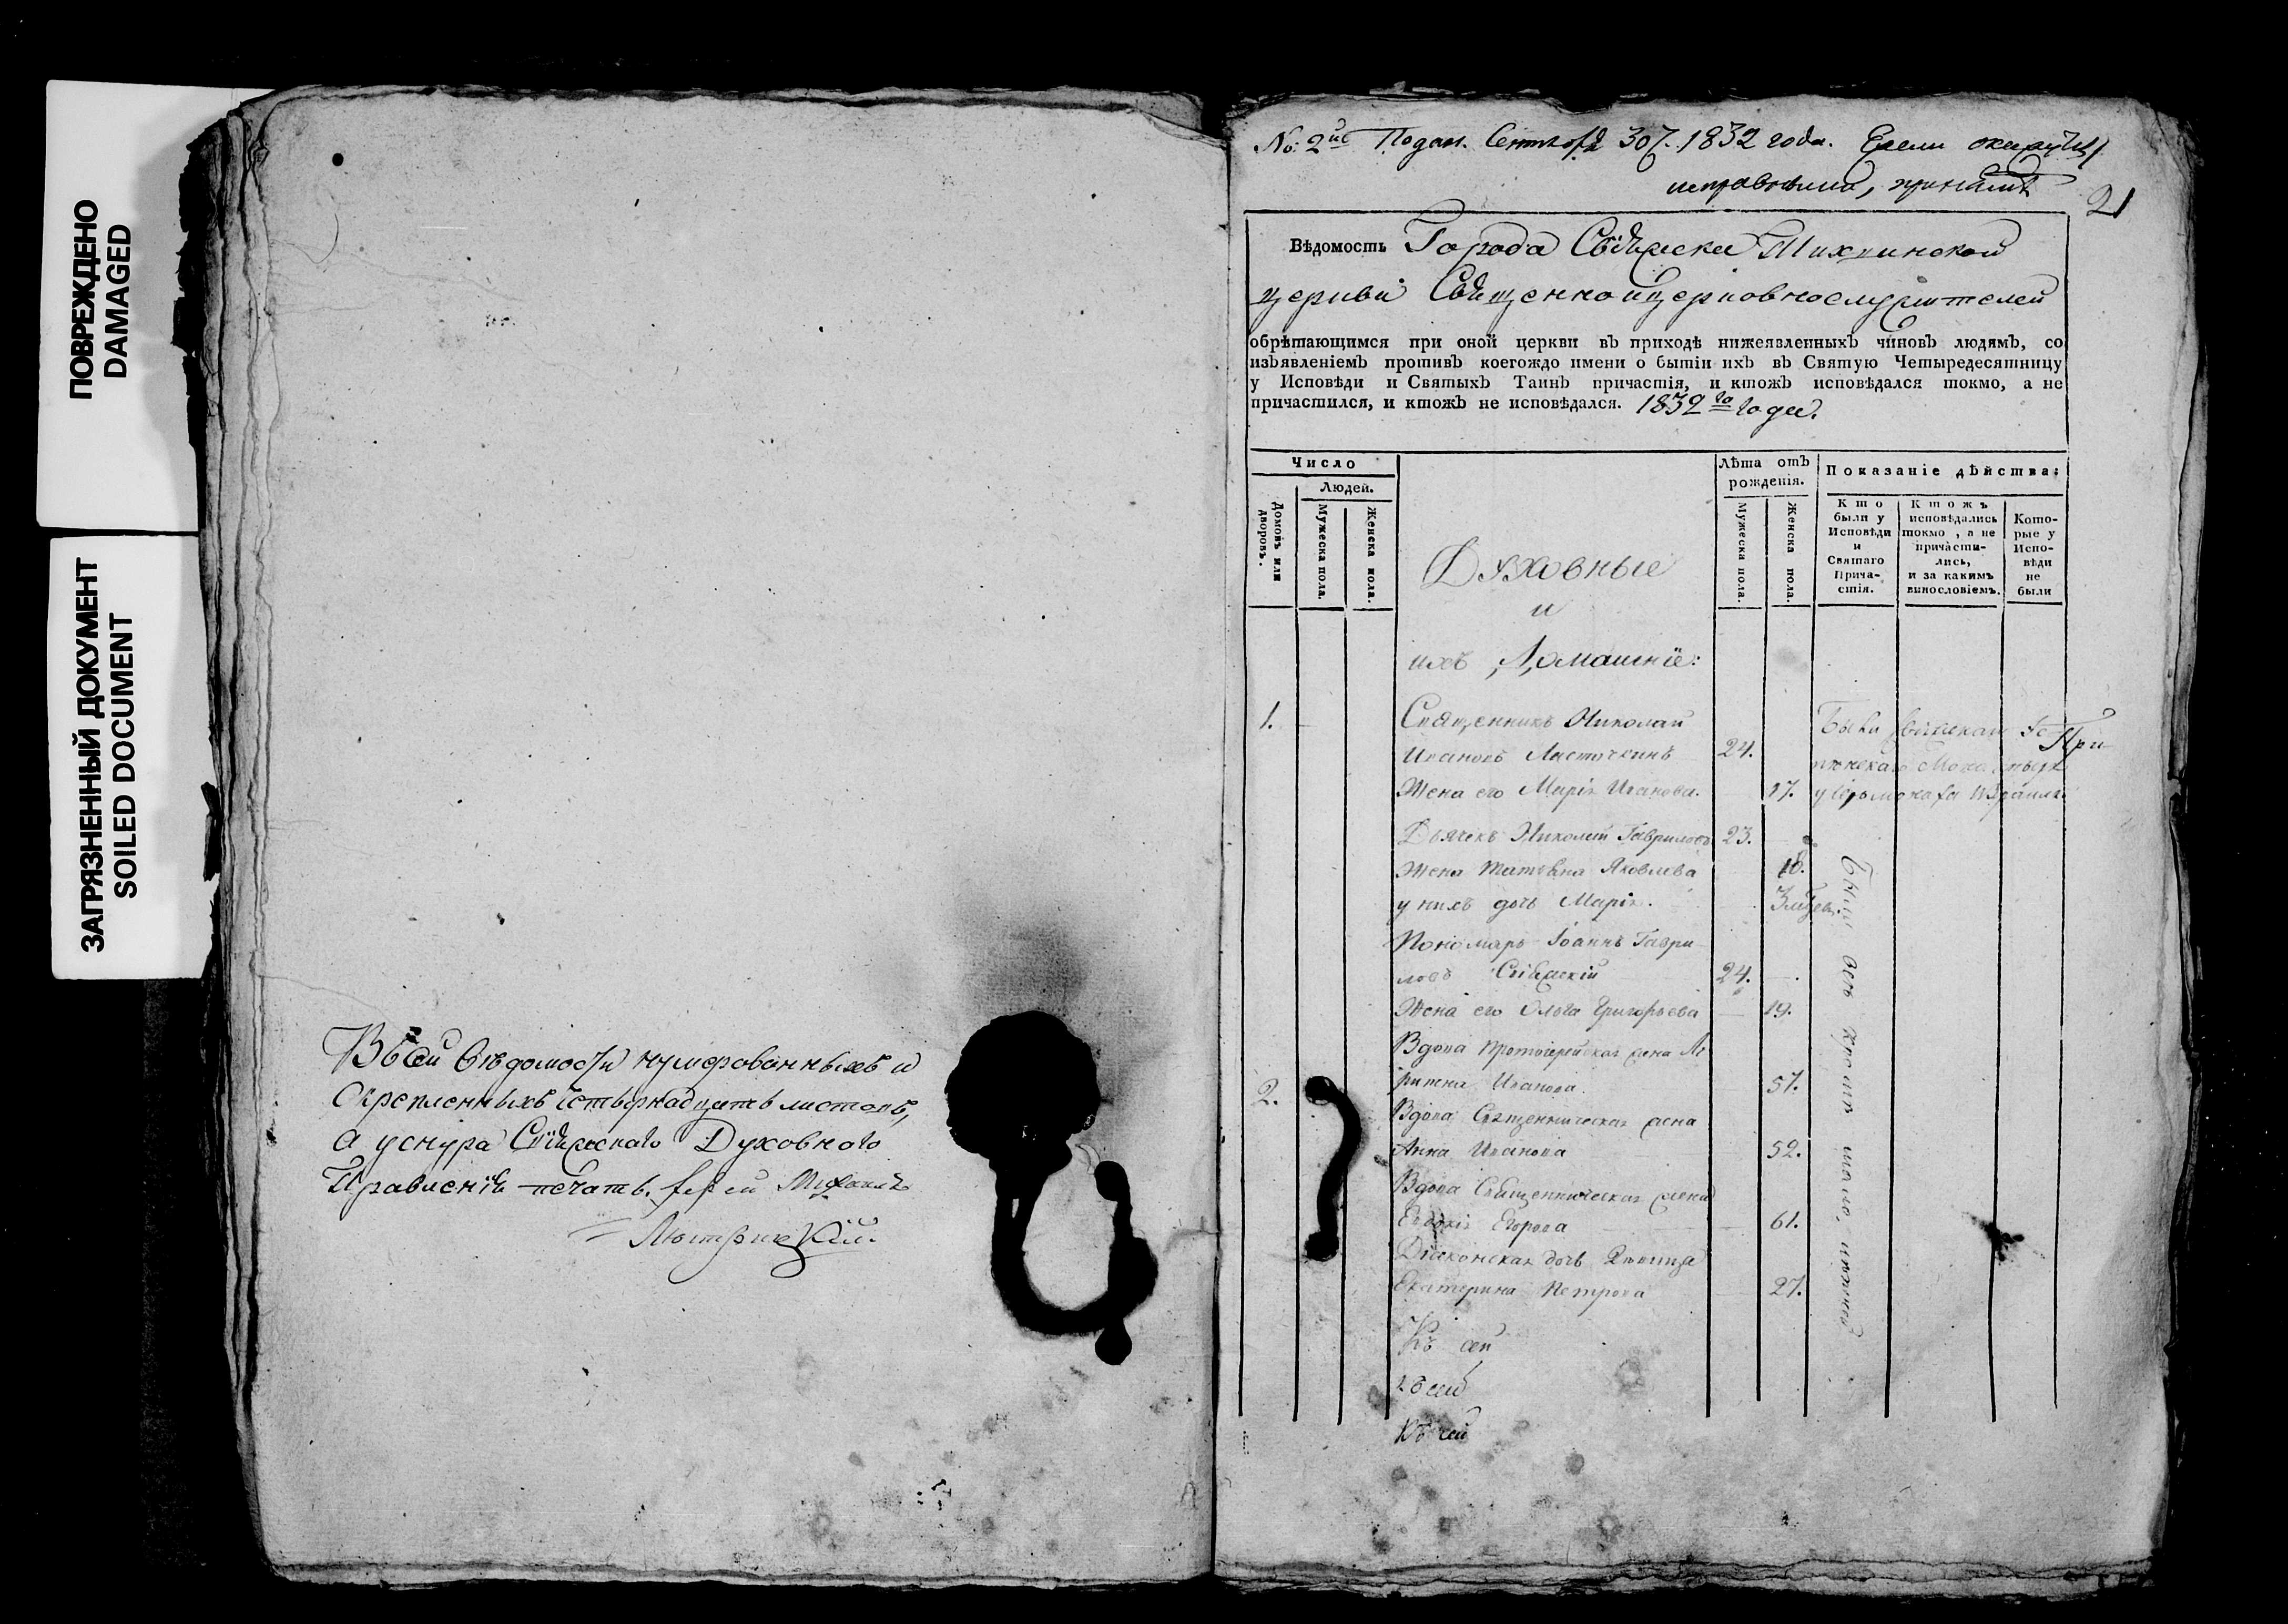 ПОВРЕЖДЕНО
DAMAGED
ЗАГРЯЗНЕННЫЙ ДОКУМЕНТ
SOILED DOCUMENT
Въ сей вѣдомости нумерованныхъ и
скрепленныхъ четырнадцать листовъ,
а у снура Свіяжскаго Духовнаго
Правленія печать. Іерей Михаилъ
№: 2й Подан. Сентября 30. 1832 года. Ежели окажутся
исправными, принять
21
Вѣдомость Города Свіяжска
церкви Священноицерковнослужителей
обрѣтающимся при оной церкви въ приходѣ нижеявленныхъ чиновъ людямъ, со
изъявленіемъ противъ коегождо имени о бытіи ихъ въ Святую Четыредесятницу
у Исповѣди и Святыхъ Таинъ причастія, и ктожъ исповѣдался токмо, а не
причастился, и ктожъ не исповѣдался. 1832го года.
Число
Людей.
Домовъ или дворовъ.
Мужеска пола.
Женска пола.
Лѣта отъ рожденія.
Мужеска пола.
Женска пола.
Показаніе дѣйства:
Кто были у Исповѣди и Святаго Причастія.
Ктожъ исповѣдались токмо, а не причастились, и за какимъ винословіемъ.
Которые у Исповѣди не были
Духовные
и
ихъ Домашніе:
1. Священникъ Николай
Ивановъ Ласточкинъ 24.
Жена его Марія Иванова. 17.
Дьячекъ Николай Гавриловъ 23.
Жена Татьяна Яковлева 18.
у нихъ дочь Марія.
Пономарь Іоаннъ Гаври-
ловъ Свіяжскій 24.
Жена его Ольга Григорьева 19.
Вдова Протоіерейская жена
2. Иванова 57.
Вдова Священническая жена
Анна Иванова 52.
Вдова Священническая жена
Евдокія Егорова 61.
Діаконская дочь Дѣвица
Екатерина Петрова 27.
Къ сей
Къ сей
Къ сей